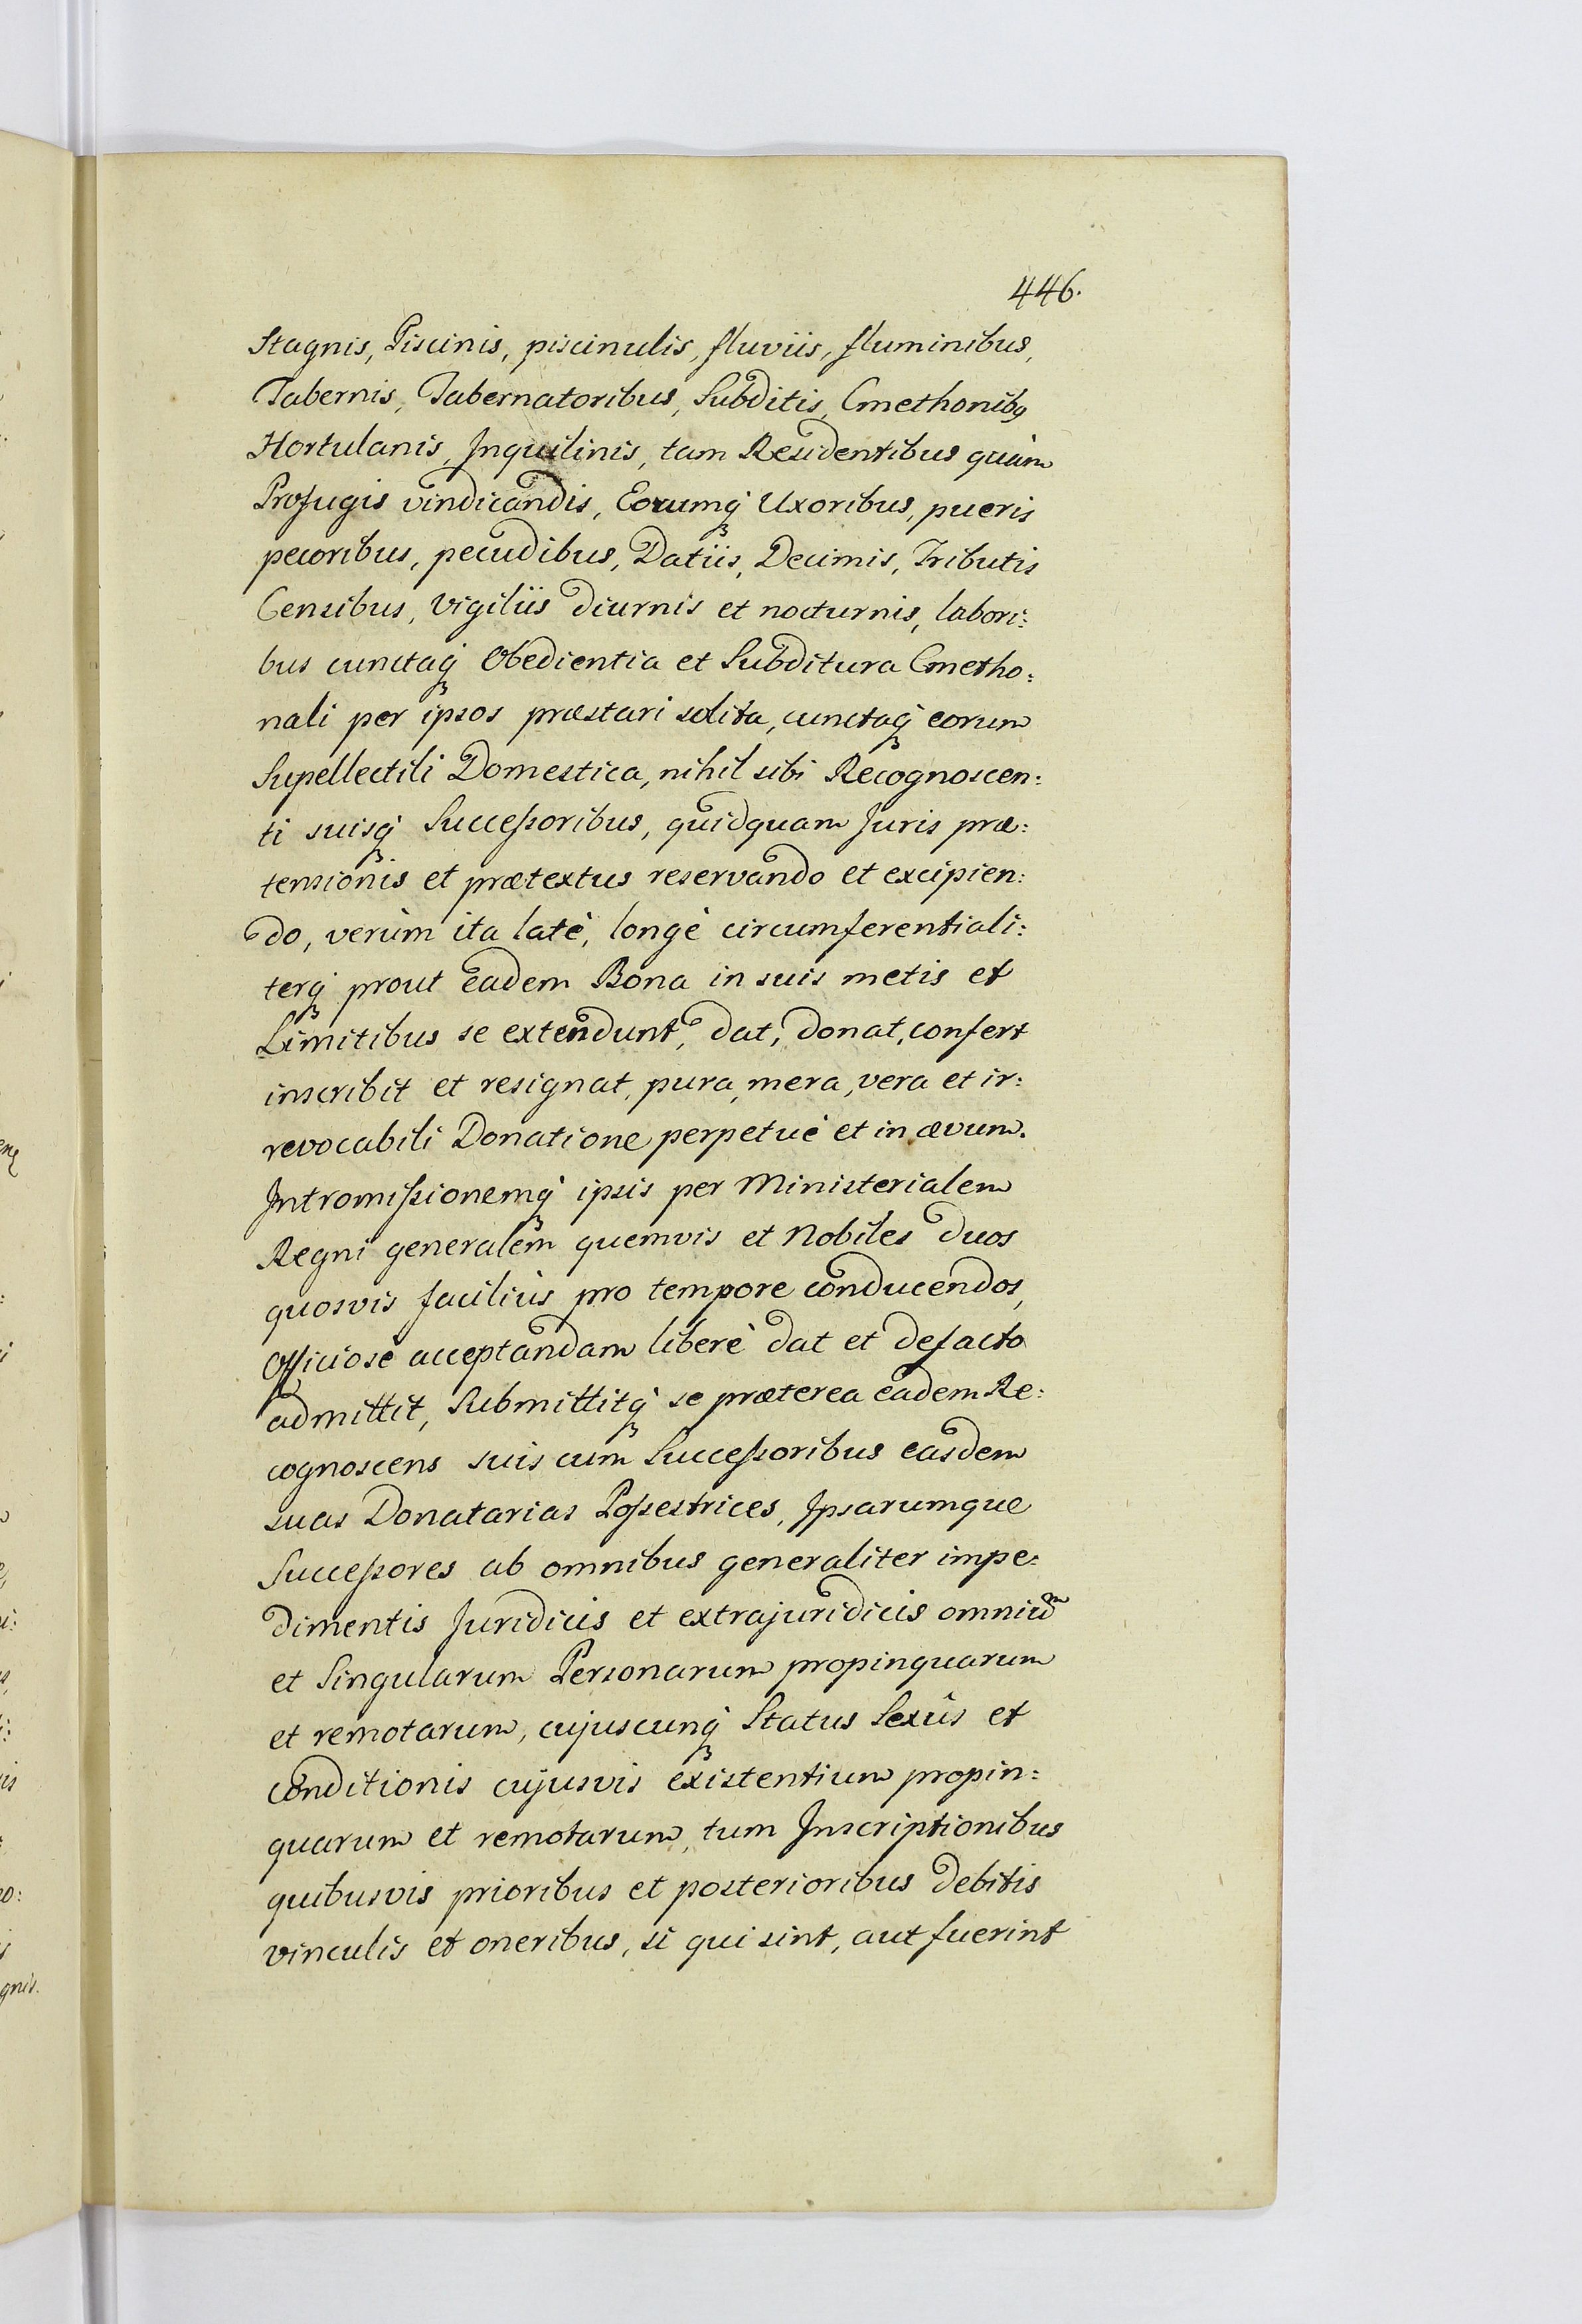 446.
Stagnis, Piscinis, piscinulis, fluviis, fluminibus,
Tabernis, Tabernatoribus, Subditis, Cmethonibꝯ
Hortulanis, Inquilinis, tam Residentibus quàm
Profugis vindicandis, Eorumqꝫ Uxoribus, pueris
pecoribus, pecudibus, Datiis, Decimis, Tributis
Censibus, vigiliis diurnis et nocturnis, labori:
bus cunctaqꝫ Obedientia et Subditura Cmetho:
nali per ipsos præstari solita, cunctaqꝫ eorum
Supellectili Domestica, nihil sibi Recognoscen:
ti suisqꝫ Successoribus, quidquam Juris præ:
tensionis et prætextus reservando et excipien:
do, verùm ita latè, longè circumferentiali:
terqꝫ prout eadem Bona in suis metis et
Limitibus se extendunt, dat, donat, confert
inscribit et resignat, pura, mera, vera et ir:
revocabili Donatione perpetuè et in ævum.
Intromissionemqꝫ ipsis per Ministerialem
Regni generalem quemvis et Nobiles duos
quosvis faciliùs pro tempore conducendos,
Officiosè acceptandam liberè dat et defacto
admittit, Submittitqꝫ se præterea eadem Re:
cognoscens suis cum Successoribus easdem
suas Donatarias Possestrices, Ipsarumque
Successores ab omnibus generaliter impe:
dimentis Juridicis et extrajuridicis omniuᵐ
et Singularum Personarum propinquarum
et remotarum, cujuscunqꝫ Status Sexûs et
conditionis cujusvis existentium propin:
quarum et remotarum, tum Inscriptionibus
quibusvis prioribus et posterioribus debitis
vinculis et oneribus, si qui sint, aut fuerint